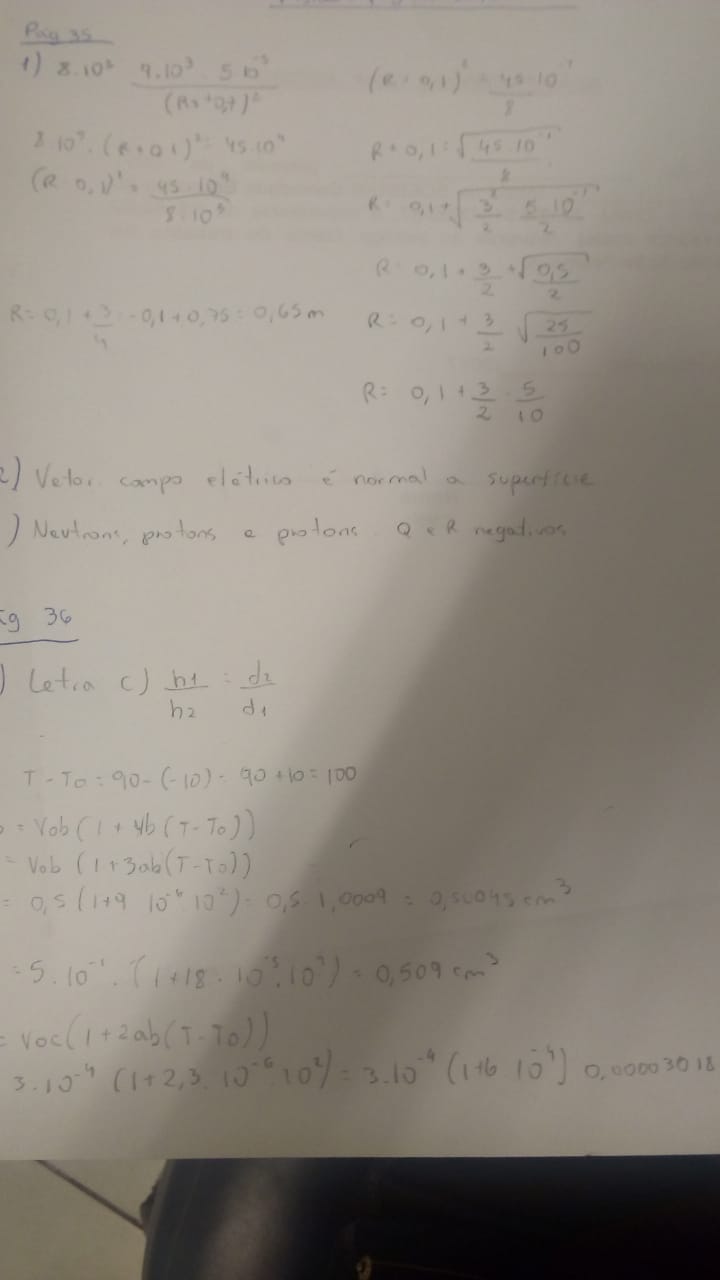 Pag 35
1) 8.10³ 9.10³ . 5 10⁻⁵
(R+0,1)²
8.10³ . (R+0,1)² = 45.10⁴
(R 0,1)² = 45.10⁴
8.10⁵
(R+0,1)² = 45.10⁻¹
8
R+0,1 = √45.10⁻¹
8
R= 0,1+√3² 5.10⁻¹
2 2
R 0,1 + 3 + √0,5
2 2
R= 0,1 + 3 √25
2 100
R= 0,1 + 3 . 5
2 10
R= 0,1 + 3 = -0,1+0,75 = 0,65m
4
2) Vetor campo elétrico é normal a superfície
) Neutrons, protons e protons. Q e R negativos
36
) Letra c) h1 = d2
h2 d1
T - To = 90-(-10) = 90+10 = 100
= Vob(1 + 4b(T-To))
= Vob (1+3ab(T-To))
= 0,5(1+9 10⁻⁶ 10²) = 0,5.1,0009 = 0,50045 cm³
= 5.10⁻¹.(1+18.10⁻⁵.10²) = 0,509 cm³
= Voc(1+2ab(T-To))
3.10⁻⁴ (1+2,3.10⁻⁶.10²) = 3.10⁻⁴ (1+6 10⁻⁴) 0,00003018